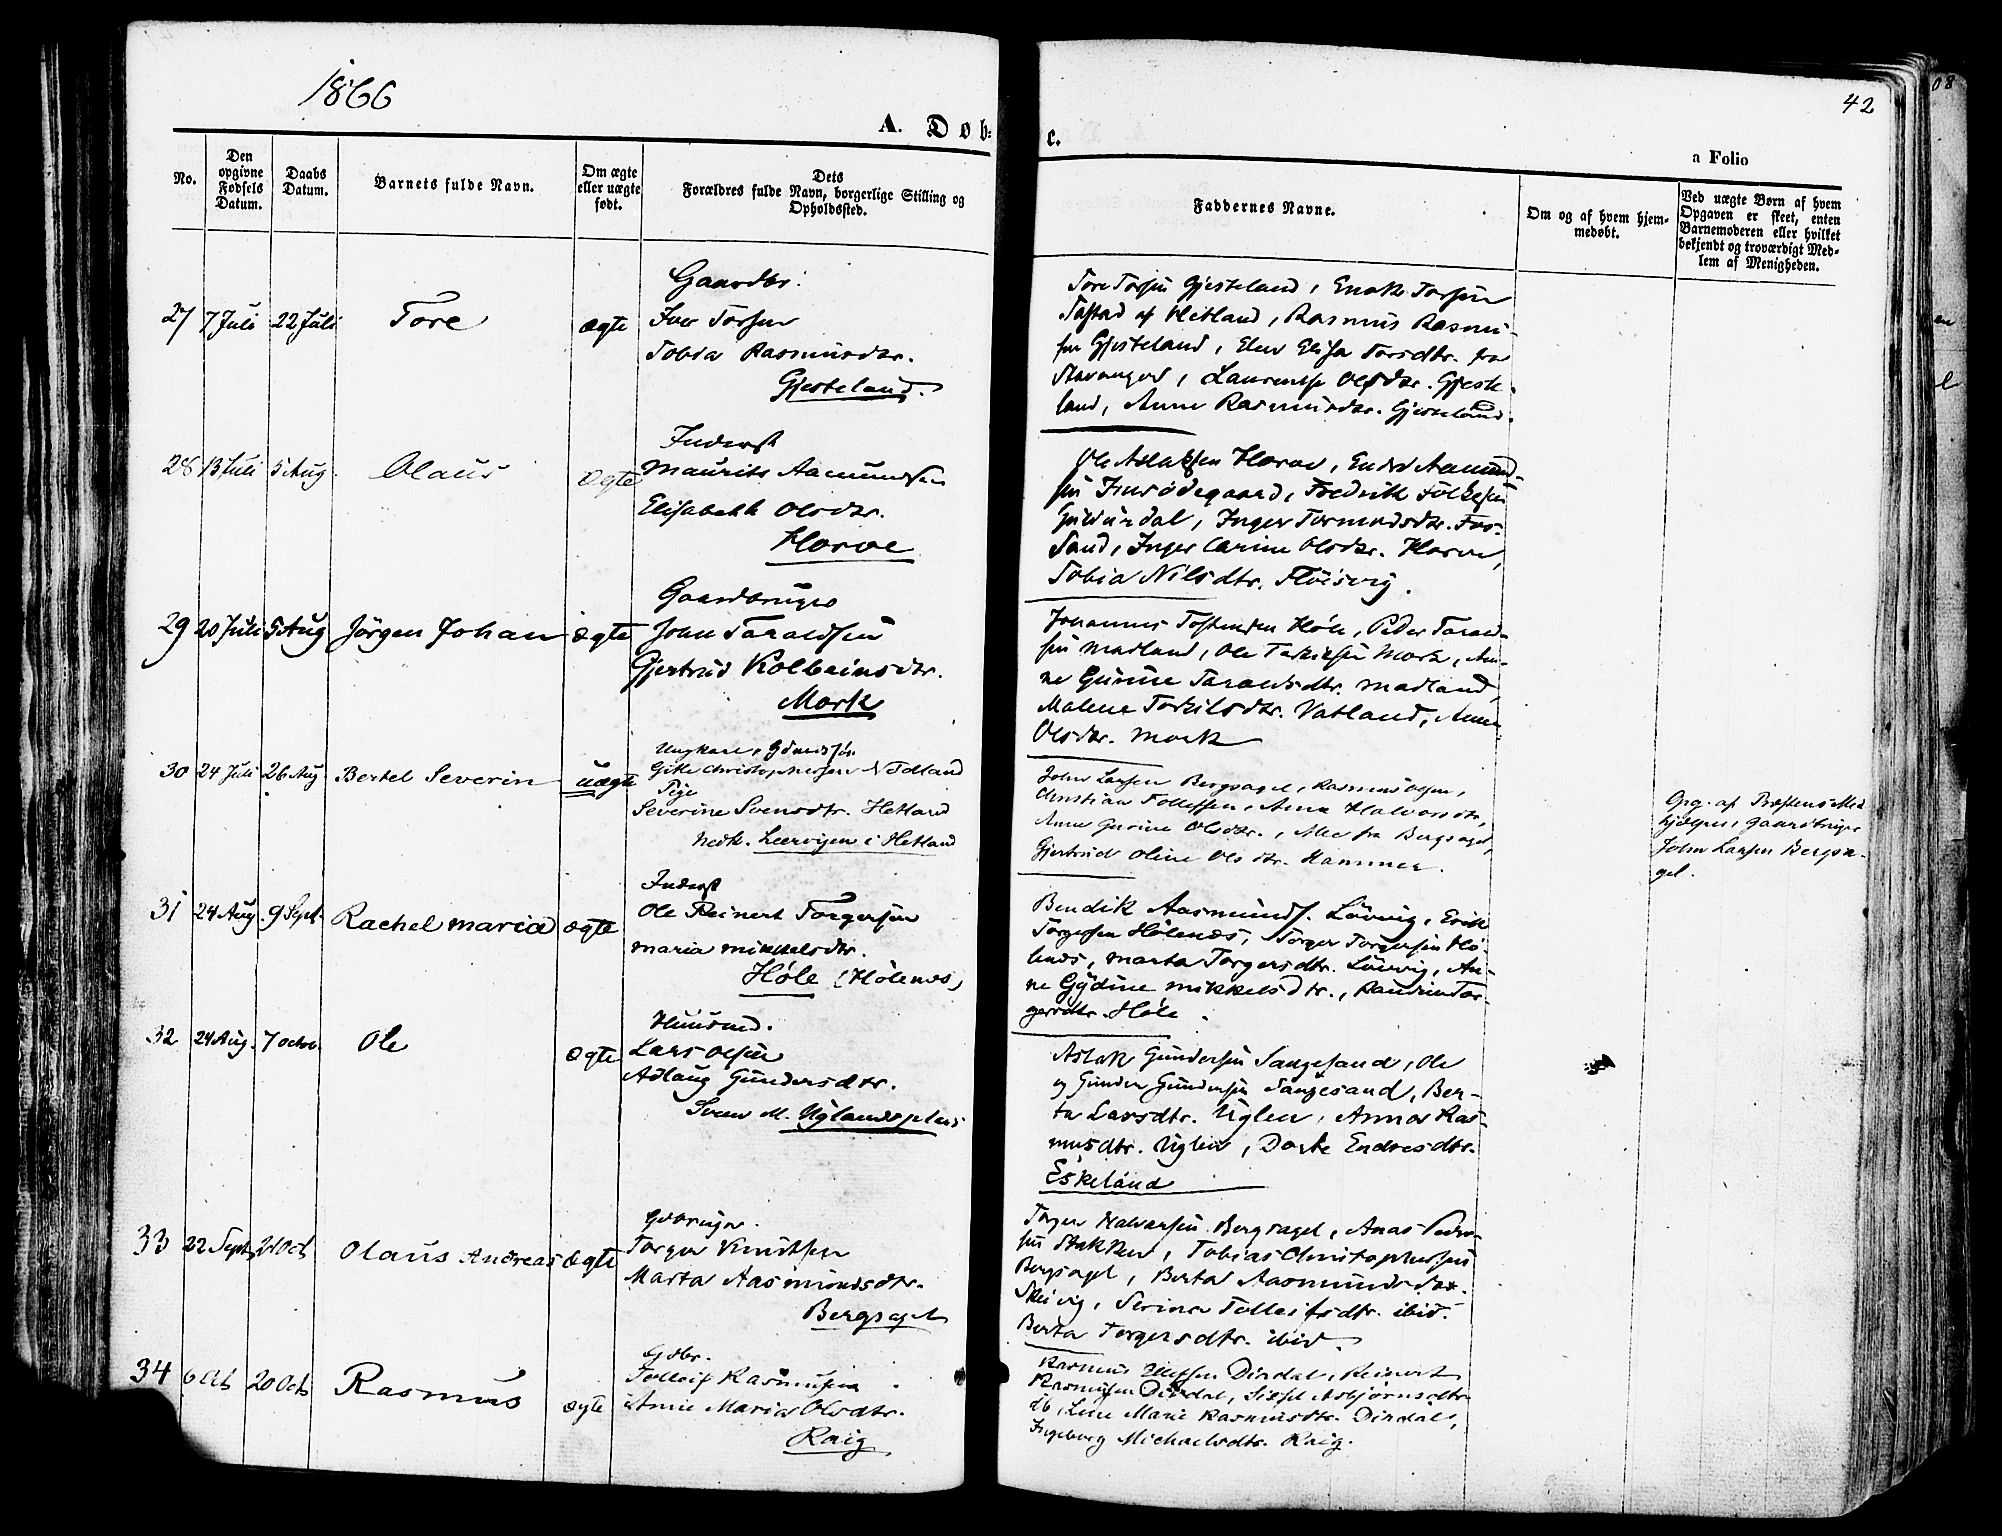 1866
42
A. Døbte.
a Folio
No.
Den opgivne Fødsels Datum.
Daabs Datum.
Barnets fulde Navn.
Om ægte eller uægte født.
Dets Forældres fulde Navn, borgerlige Stilling og Opholdssted.
Faddernes Navne.
Om og af hvem hjemmedøbt.
Ved uægte Børn af hvem Opgaven er skeet, enten Barnemoderen eller hvilket bekjendt og troværdigt Medlem af Menigheden.
27 7 Juli 22 Juli Tore ægte
Gaardbr:
Iver Torsen
Tobia Rasmusdtr.
Gjesteland.
Tore Torsen Gjesteland, Enok Torsen
Tastad af Hetland, Rasmus Rasmu-
sen Gjesteland, Elen Elisa Torsdtr. fra
Stavanger, Laurentse Olsdtr. Gjeste-
land, Anne Rasmusdtr. Gjesteland.
28 13 Juli 5 Aug Olaus ægte
Inderst
Maurits Aamundsen
Elisabeth Olsdtr.
Horve
Ole Aslaksen Horve, Endre Aamund-
sen Imsødegaard, Fredrik Folkesen
Inger Tormodsdtr. Fos-
sand, Inger Carine Olsdtr. Horve,
Tobia Nilsdtr. Fløisvig.
29 20 Juli 5 Aug Jørgen Johan ægte
Gaardbruger
John Taraldsen
Gjertrud Kolbeinsdtr.
Mork
Johannes Tostensen Høle, Peder Tarald-
sen Madland, Ole Terkelsen Mork, An-
ne Gurine Taraldsdtr. Madland,
Malene Torkilsdtr. Vatland, Anne
Olsdtr. Mork
30 24 Juli 26 Aug Bertel Severin uægte
Ungkarl, Gaardsøn
Gitle Christophersen Nedland
Pige
Severine Svensdtr. Hetland
Nedk. Leervigen i Hetland
John Larsen Bergsagel, Rasmus Olsen,
Christian Tollefsen, Anna Halvorsdtr,
Anne Gurine Olsdtr., Alle fra Bergsagel,
Gjertrud Oline Olsdtr. Hammer.
Opg. af Præstens Med-
hjælper, Gaardbruger
John Larsen Bergsa-
gel.
31 24 Aug. 9 Sept. Rachel Maria ægte
Inderst
Ole Reinert Torgersen
Maria Mikkelsdtr.
Høle (Hølenes)
Bendik Aasmunds. Lövvig, Erik
Torgersen Hølenes, Torger Torgersen Hø-
lenes, Marta Torgersdtr. Lövvig, An-
ne Gydine Mikkelsdtr., Randine Tor-
gersdtr. Høle.
32 24 Aug. 7 Octob. Ole ægte
Huusmd.
Lars Olsen
Adlaug Gundersdtr.
Uglandsplads
Aslak Gundersen Sangesand, Ole
og Gunder Gundersen Sangesand, Ber-
ta Larsdtr. Uglen, Anna Ras-
musdtr. Uglen, Dorte Endresdtr.
Eskeland
33 22 Sept. 21 Oct Olaus Andreas ægte
Gdbruger.
Torger Knutsen
Marta Aasmundsdtr.
Bergsagel
Torger Halvorsen Bergsagel, Anas Peder-
sen Stakken, Tobias Christophersen
Bergsagel, Berta Aasmundsdtr.
Skeivig, Serina Tolleifsdtr. ibid.
Berta Torgersdtr. ibid.
34 6 Oct 20 Oct Rasmus ægte
Gdbr.
Tolleif Rasmusen
Anne Maria Olsdtr.
Raig
Rasmus Dirdal, Reinert
Rasmusen Dirdal, Sissel Asbjørnsdtr
ib, Line Marie Rasmusdtr. Dirdal,
Ingeborg Michaelsdtr. Raig.